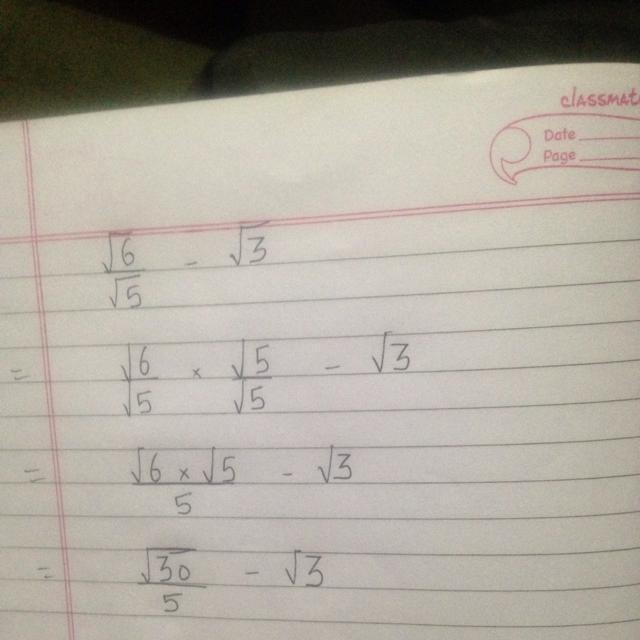 classmat
Date
Page
√6/√5 - √3
= √6/√5 × √5/√5 - √3
= √6 × √5/5 - √3
= √30/5 - √3